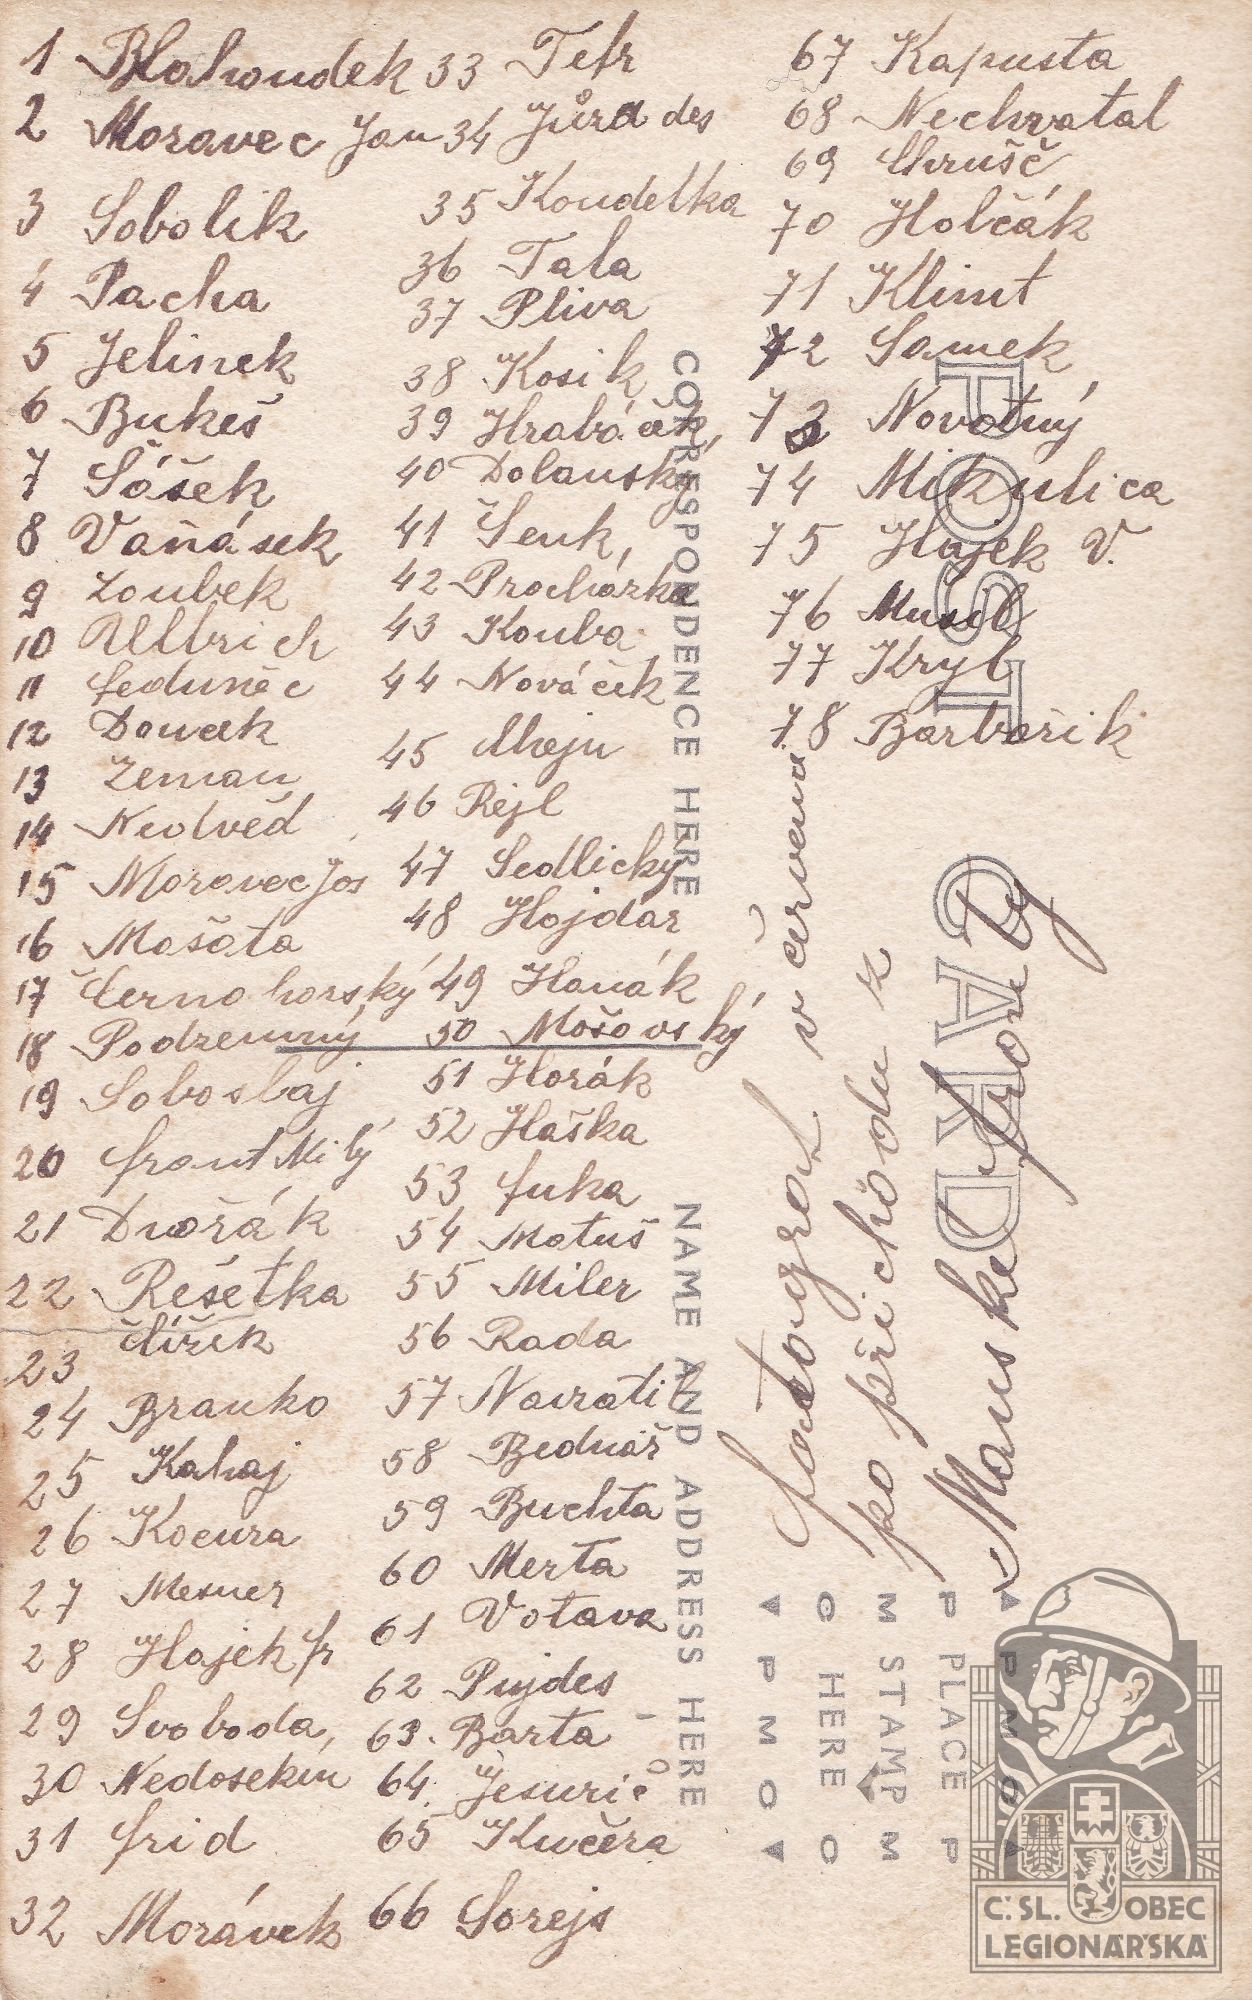 1 Blahoudek
2 Moravec Jan
3 Sobolik
4 Pacha
5 Jelinek
6 Bukeš
7 Šášek
8 Vaňásek
9 Zoubek
10 Ullrich
11 Feduněc
12 Domek
13 Zeman
14 Nedvěd
15 Moravec Jos
16 Mašata
17 Černohorský
18 Podzemný
19 Soboslaj
20 Frant Milý
21 Dvořák
22 Rešetka
23 Čížek
24 Branko
25 Kahaj
26 Kocura
27 Mesner
28 Hajek fr
29 Svoboda,
30 Nedosekin
31 Frid
32 Morávek
33 Tetr
34 Jůrades
35 Koudelka
36 Tala
37 Pliva
38 Kosik
39 Hrabáček,
40 Dolanský
41 Šenk,
42 Procházka
43 Kouba
44 Nováček
45 Uheju
46 Rejl
47 Sedlický
48 Hojdar
49 Hanák
50 Mošovský
51 Horák
52 Haška
53 Fuka
54 Matuš
55 Miler
56 Rada
57 Navratil
58 Bednář
59 Buchta
60 Merta
61 Votava
62 Pujdes
63. Barta
64.
65 Kučera
66 Sorejs
67 Kapusta
68 Nechvatal
69 Uhrušč
70 Holčák
71 Klimt
72 Samek
73 Novotný
74 Mikulica
75 Hajek V.
76 Musil
77 Kryl
78 Barbořik
fotograf v červenci
po příchodu z
Manske fronty
POST CARD
CORRESPONDENCE HERE
NAME AND ADDRESS HERE
▲ P M O ▲
P PLACE P
M STAMP M
O HERE O
▼ P M O ▼
Č. SL. OBEC
LEGIONÁŘSKÁ